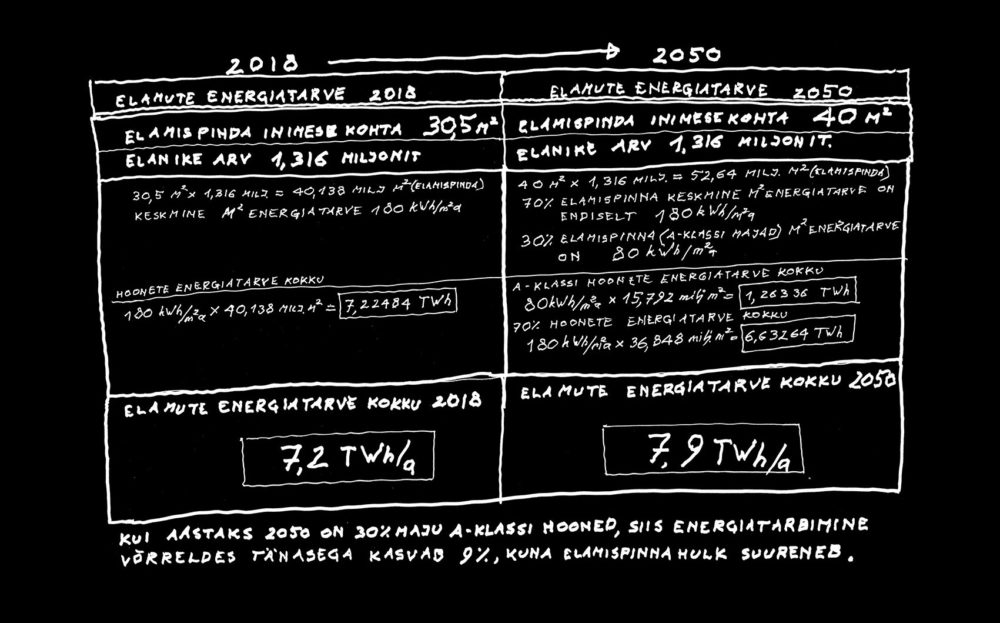 2018
2050
ELAMUTE ENERGIATARVE 2018
ELAMISPINDA INIMESE KOHTA 30,5 M²
ELANIKE ARV 1,316 MILJONIT
30,5 M² × 1,316 MILJ = 40,138 MILJ M² (ELAMISPINDA)
KESKMINE M² ENERGIATARVE 180 kWh/m²a
HOONETE ENERGIATARVE KOKKU
180 kWh/m²a × 40,138 MILJ. M² = 7,22484 TWh
ELAMUTE ENERGIATARVE KOKKU 2018
7,2 TWh/a
ELAMUTE ENERGIATARVE 2050
ELAMISPINDA INIMESE KOHTA 40 M²
ELANIKE ARV 1,316 MILJONIT.
40 M² × 1,316 MILJ. = 52,64 MILJ. M² (ELAMISPINDA)
70% ELAMISPINNA KESKMINE M² ENERGIATARVE ON
ENDISELT 180 kWh/m²a
30% ELAMISPINNA (A-KLASSI MAJAD) M² ENERGIATARVE
ON 80 kWh/m²a
A-KLASSI HOONETE ENERGIATARVE KOKKU
80kWh/m²a × 15,792 milj m² = 1,26336 TWh
70% HOONETE ENERGIATARVE KOKKU
180 kWh/m²a × 36,848 milj. m² = 6,63264 TWh
ELAMUTE ENERGIATARVE KOKKU 2050
7,9 TWh/a
KUI AASTAKS 2050 ON 30% MAJU A-KLASSI HOONED, SIIS ENERGIATARBIMINE
VÕRRELDES TÄNASEGA KASVAB 9%, KUNA ELAMISPINNA HULK SUURENEB.